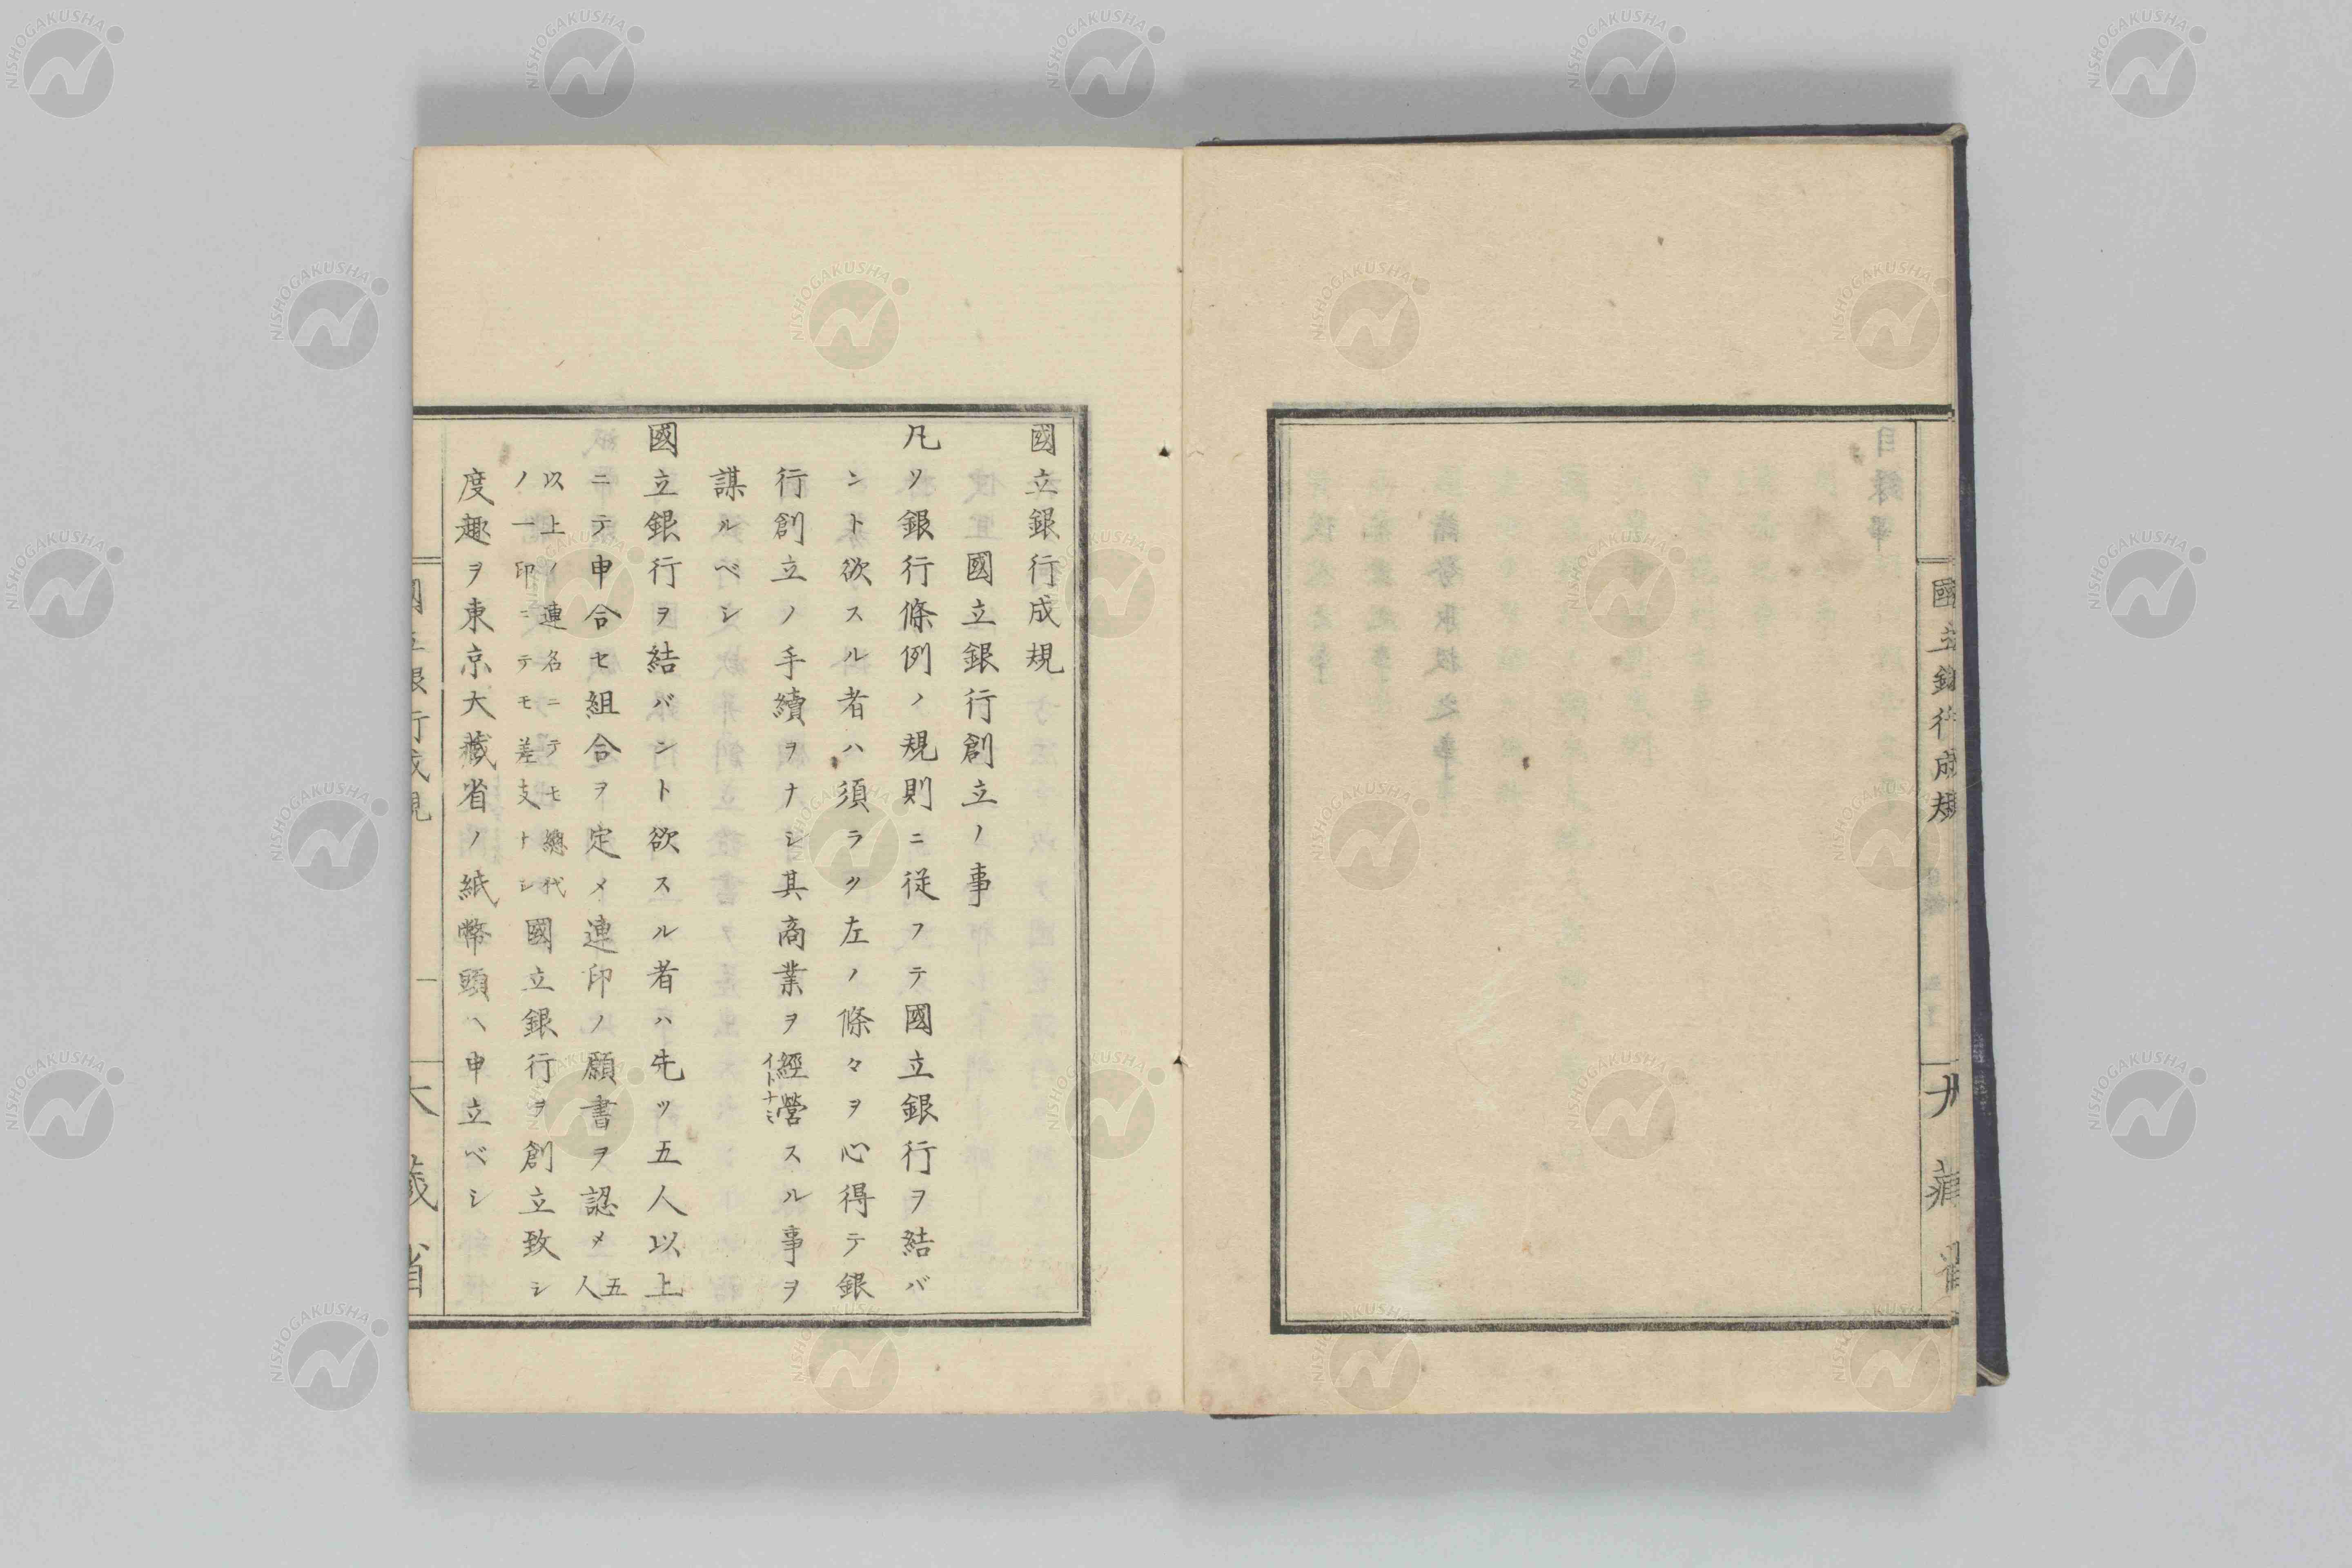 國立銀行成規
國立銀行創立ノ事
凡ソ銀行條例ノ規則ニ従フテ國立銀行ヲ結バ
ント欲スル者ハ須ラク左ノ條々ヲ心得テ銀
行創立ノ手續ヲナシ其商業ヲ經營スル事ヲ
イトナミ
謀ルベシ
國立銀行ヲ結バント欲スル者ハ先ツ五人以上
ニテ申合セ組合ヲ定メ連印ノ願書ヲ認メ五人
以上ノ連名ニテモ總代
ノ一印ニテモ差支ナシ
國立銀行ヲ創立致シ
度趣ヲ東京大藏省ノ紙幣頭ヘ申立ベシ
國立銀行成規
一
大藏省
國立銀行成規
NISHOGAKUSHA